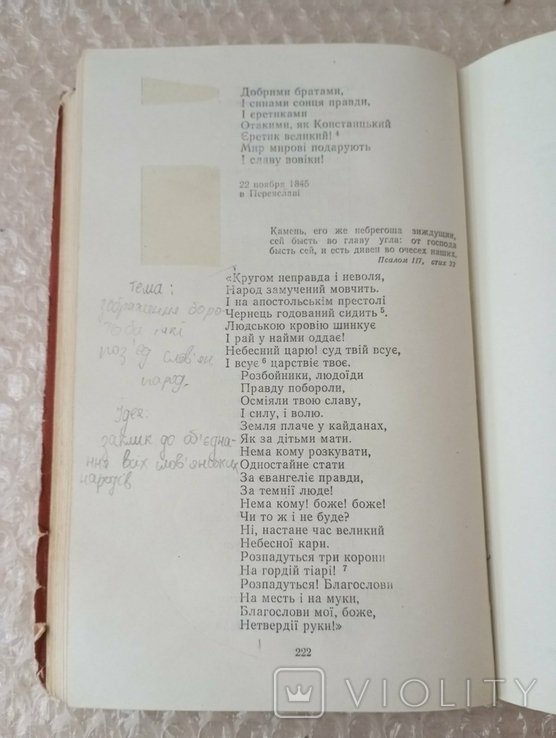 Добрими братами,
І синами сонця правди,
І єретиками
Отакими, як Констанцький
Єретик великий! 4
Мир мирові подарують
І славу вовіки!
22 ноября 1845
в Переяславі
Камень, его же небрегоша зиждущии,
сей бысть во главу угла: от господа
бысть сей, и есть дивен во очесех наших.
Псалом 117, стих 22
«Кругом неправда і неволя,
Народ замучений мовчить.
І на апостольськім престолі
Чернець годований сидить 5.
Людською кровію шинкує
І рай у найми оддає!
Небесний царю! суд твій всує,
І всує 6 царствіє твоє.
Розбойники, людоїди
Правду побороли,
Осміяли твою славу,
І силу, і волю.
Земля плаче у кайданах,
Як за дітьми мати.
Нема кому розкувати,
Одностайне стати
За євангеліє правди,
За темнії люде!
Нема кому! боже! боже!
Чи то ж і не буде?
Ні, настане час великий
Небесної кари.
Розпадуться три корони
На гордій тіарі! 7
Розпадуться! Благослови
На месть і на муки,
Благослови мої, боже,
Нетвердії руки!»
222
Тема:
зображення боро-
роз'єд слов'ян
народ.
Ідея:
заклик до об'єдна-
ння всіх слов'янських
народів
VIOLITY